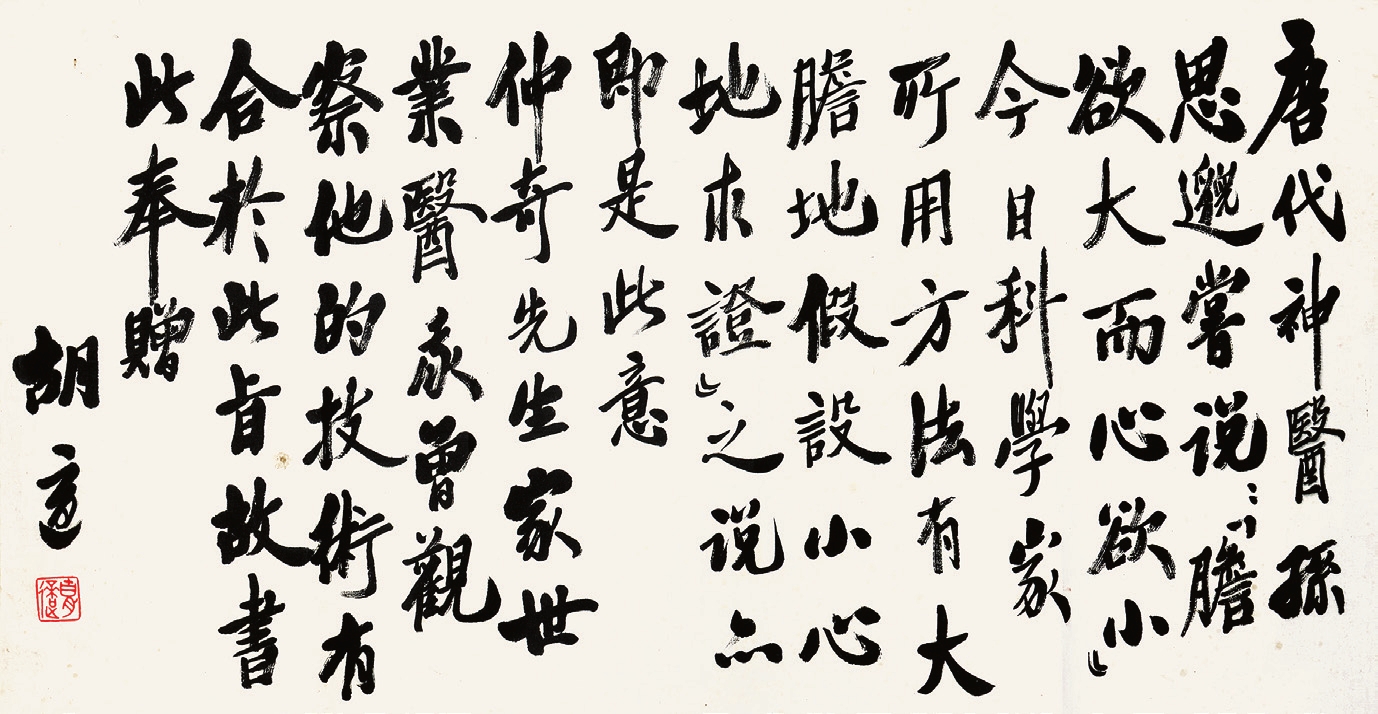 唐代神醫孫
思邈嘗說：「膽
欲大而心欲小」
今日科學家
所用方法有大
膽地假設小心
地求證」之说亦
即是此意
仲奇先生家世
業醫家曾觀
察他的技術有
合於此旨故書
此奉贈
胡適